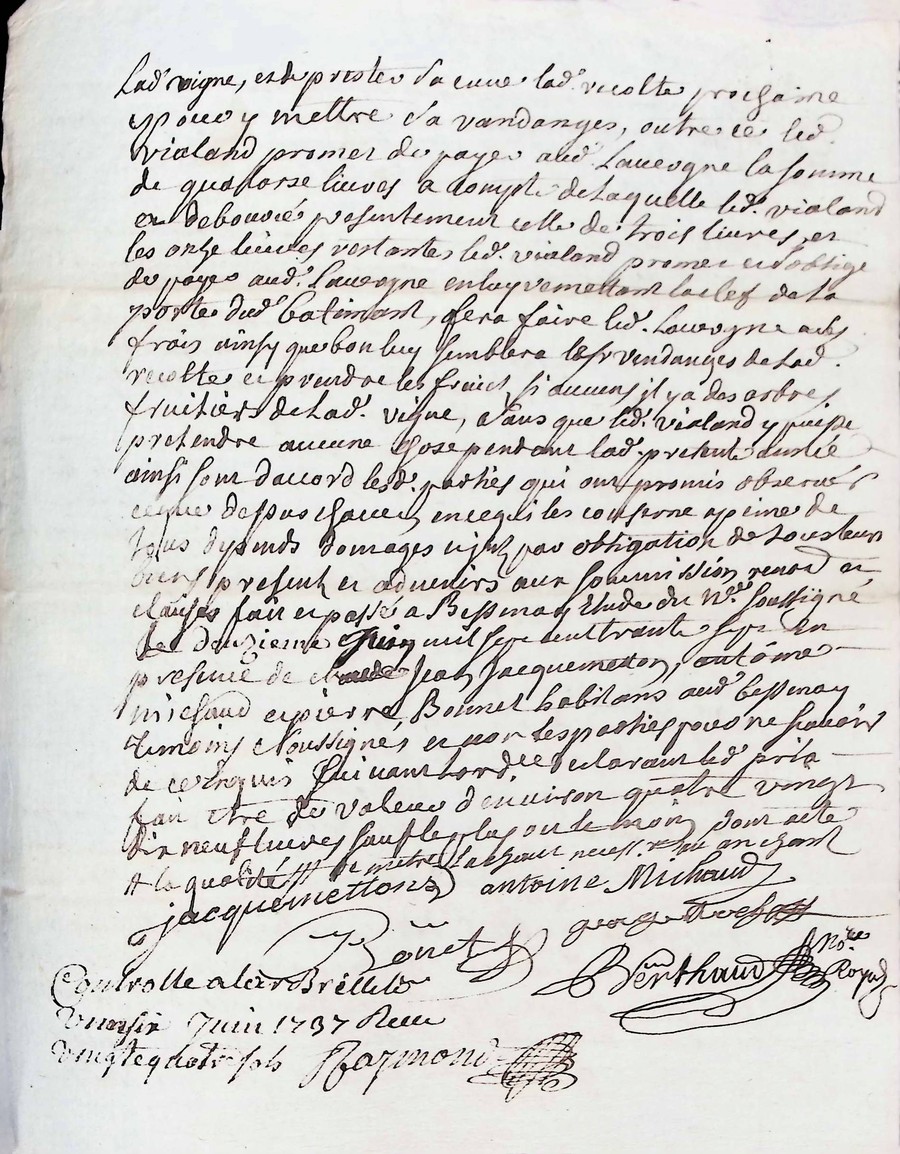 Lad. vigne, et de prester sa cuve lad. recolte prochaine
pour y mettre sa vandanges, outre ce led.
vialand promet de payer aud. Lauvergne la somme
de quatorse livres a compte de laquelle led. vialand
en debource presentement celle de trois livres, et
les onze livres restantes led. vialand promet et s'oblige
de payer aud. Lauvergne en luy remettant la clef de la
porte dud. batimant, fera faire led. Lauvergne a ses
frais ainsy que bon luy semblera les vendanges de lad.
recolte et prendre les fruict si aucuns il y a des arbres
fruitiers de lad. vigne, sans que led. vialand y puisse
pretendre aucune chose pendant lad. presente année
ainsi sont d'accord lesd. parties qui ont promis observer
ce que dessus chacun en ce qui les conserne a peine de
tous depends domages par obligation de tous leurs
biens presents et advenirs aux soummission renond et
clauses fait et passé a Bessenay Etude du Nre. soussigné
le deuzieme Juin mil sept cent trante sept en
presence de Jean Jacquemetton, antoine
michaud et pierre Bonnet habitans aud. bessenay
temoins soussignés et non les parties pour ne scavoir
de ce enquis suivant l'ord.ce declarant led. prix
fait etre de valeur d'environ quatre vingt
dix neuf livres sauf le plus ou le moin dont acte
# la qualité #
jacquemettond antoine Michaud
george
Bonet
Berthaud Nore. Royal
Controlle a larBrelle le
vingt six Juin 1737 Receu
vingt e quatre sols Raymond